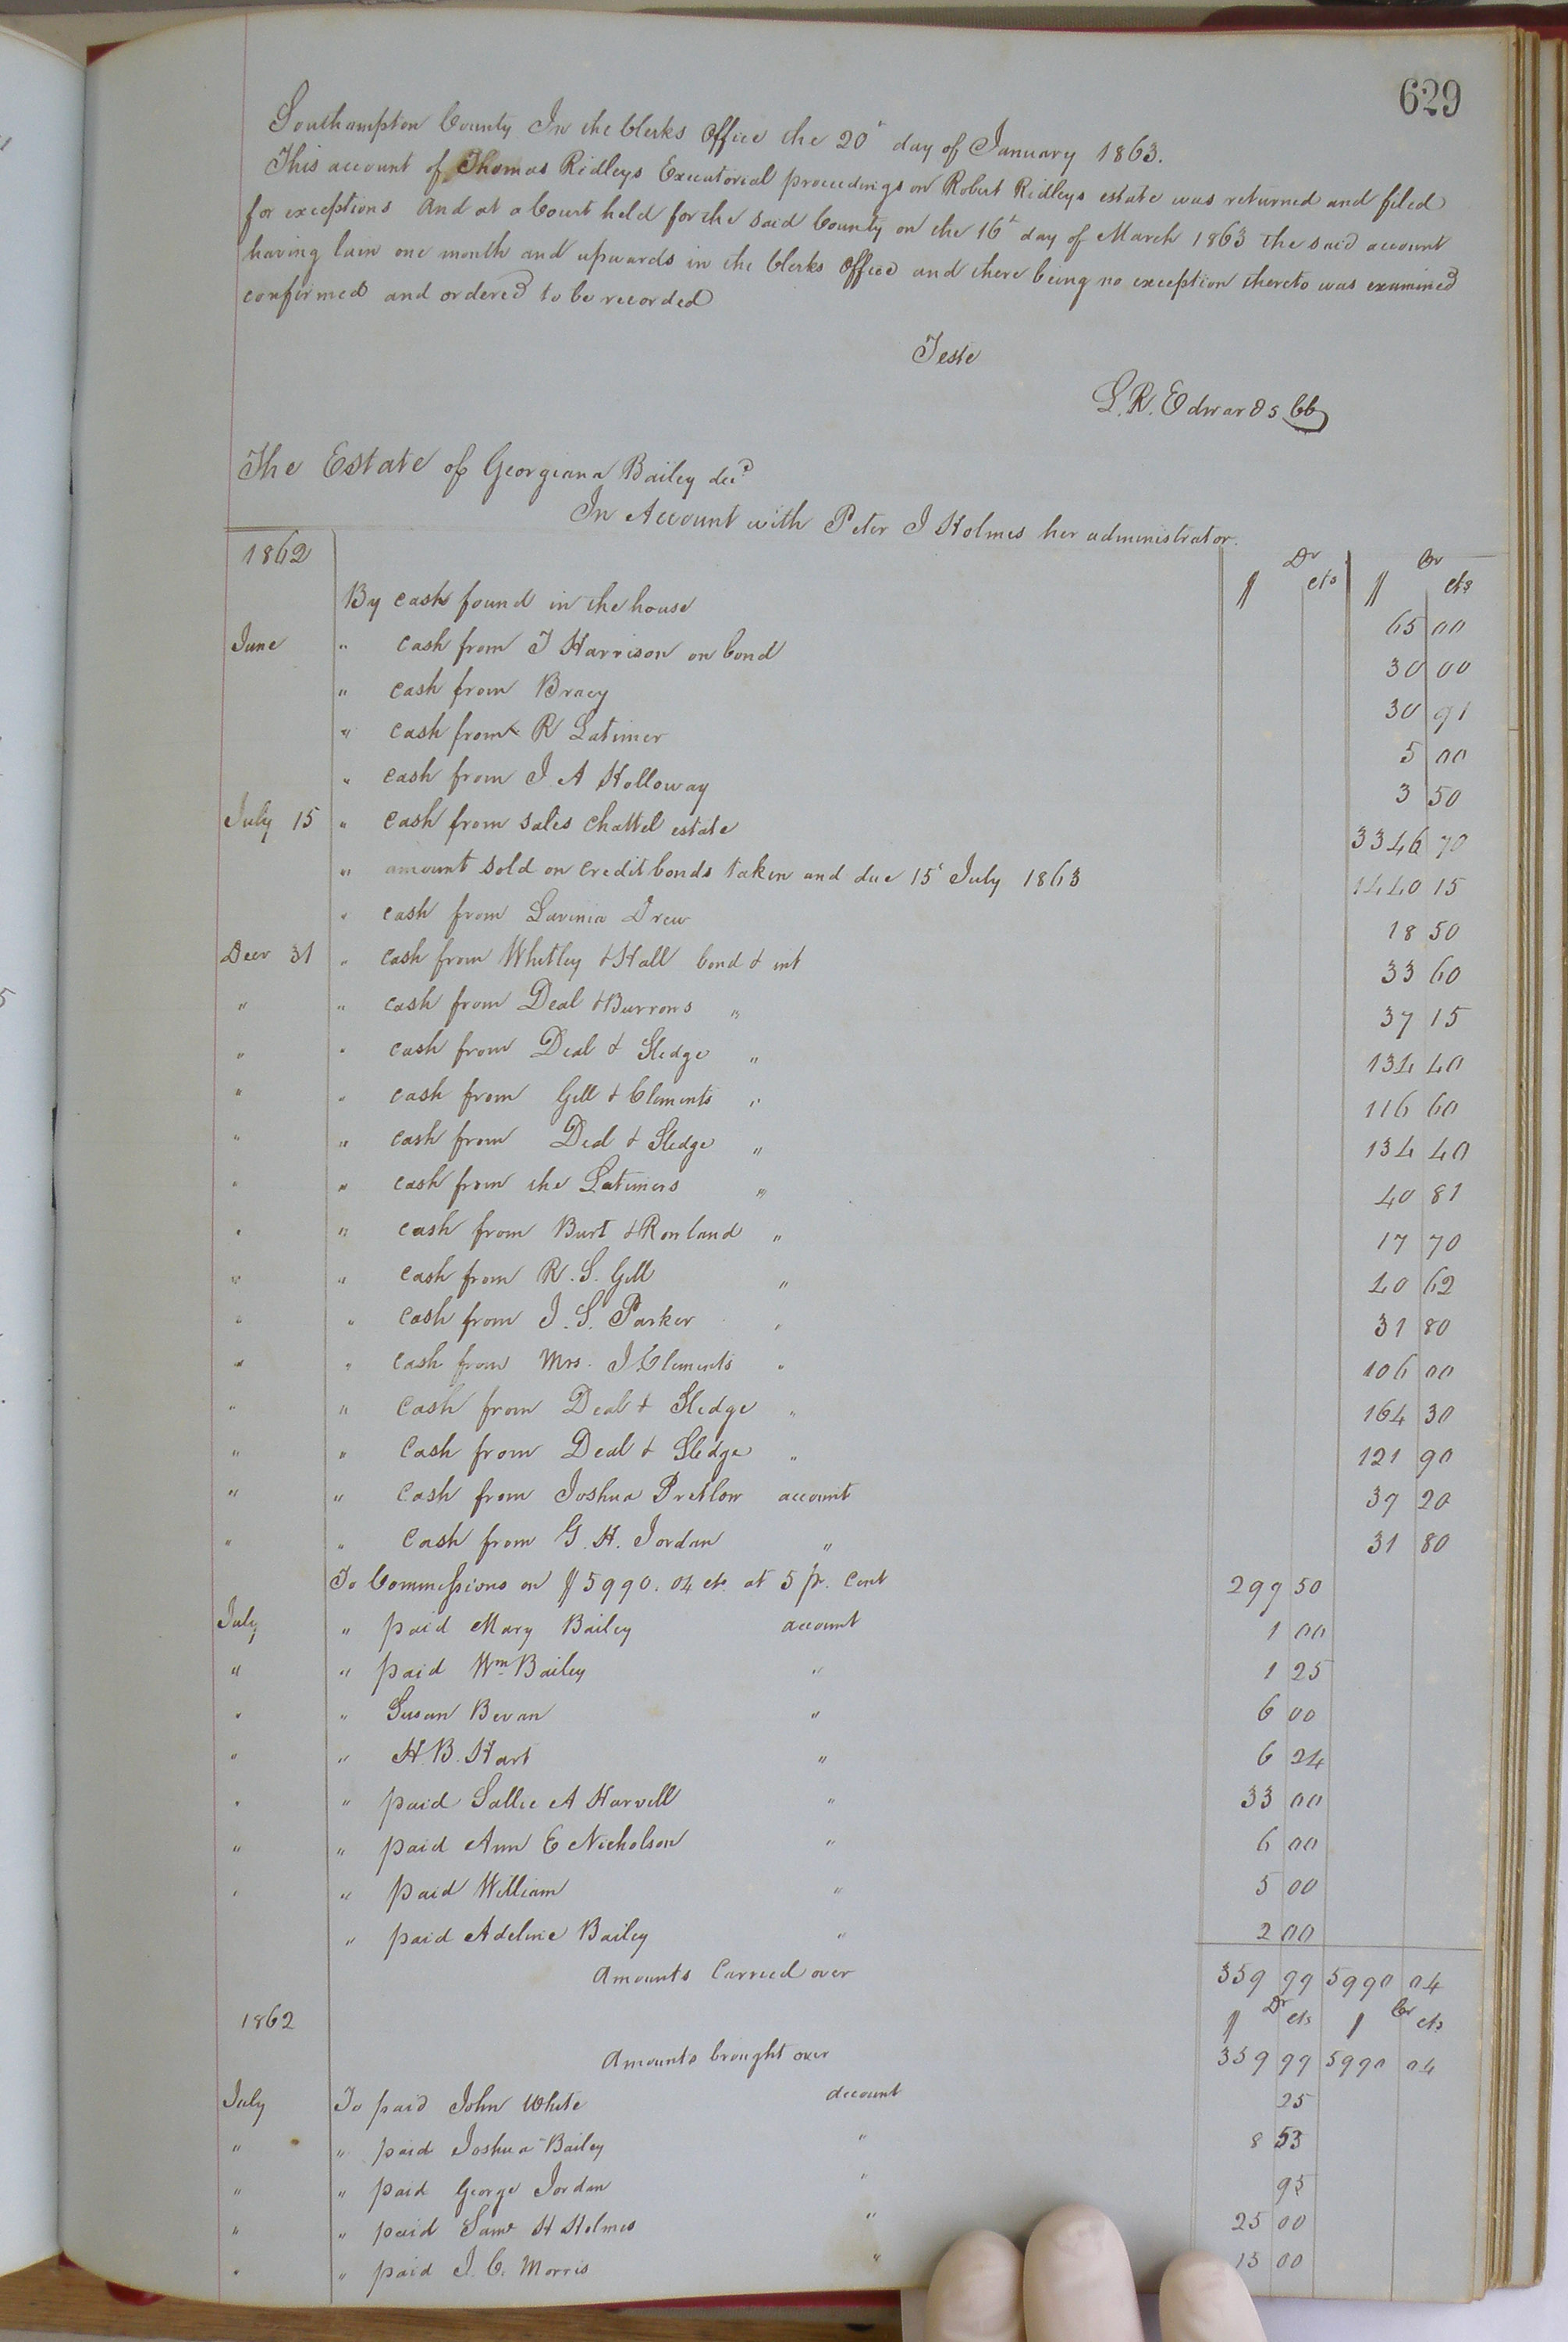 629
Southampton County In the Clerks Office the 20th day of January 1863.
This account of Thomas Ridleys Executorial proceedings on Robert Ridleys estate was returned and filed
for exceptions And at a Court held for the said County on the 16th day of March 1863 the said account
having lain one month and upwards in the Clerks Office and there being no exception thereto was examined
confirmed and ordered to be recorded
Teste
L. R. Edwards CC
The Estate of Georgiana Bailey decd
In Account with Peter J Holmes her administrator.
1862 Dr Cr
$ cts $ cts
By cash found in the house 65 00
June " cash from T Harrison on bond 30 00
" cash from Bracy 30 91
" cash from R Latimer 5 00
" cash from J. A Holloway 3 50
July 15 " cash from sales chattel estate 3346 70
" amount sold on credit bonds taken and due 15t July 1863 1440 15
" cash from Lavinia Drew 18 50
Decr 31 " cash from Whitley & Hall bond & int 33 60
" " cash from Deal & Burrows " 37 15
" " cash from Deal & Sledge " 134 40
" " cash from Gill & Clements " 116 60
" " cash from Deal & Sledge " 134 40
" " cash from the Latimers " 40 81
" " cash from Burt & Rowland " 17 70
" " cash from R. S. Gill " 40 62
" " cash from J. S. Parker " 31 80
" " cash from Mrs. J Clements " 106 00
" " cash from Deal & Sledge " 164 30
" " Cash from Deal & Sledge " 121 90
" " Cash from Joshua Pretlow account 39 20
" " Cash from G. H. Jordan " 31 80
To Commissions on $5990.04 cts. at 5 pr. Cent 299 50
July " paid Mary Bailey account 1 00
" " paid Wm Bailey " 1 25
" " Susan Bevan " 6 00
" " H. B. Hart " 6 24
" " paid Sallie A Harvell " 33 00
" " paid Ann E Nicholson " 6 00
" " paid William " 5 00
" paid Adeline Bailey " 2 00
Amounts Carried over 359 99 5990 04
1862 $ Dr cts $ Cr cts
Amounts brought over 359 99 5990 04
July To paid John White account 25
" " paid Joshua Bailey " 8 53
" " paid George Jordan " 95
" " paid Saml H Holmes " 25 00
" " paid J. C. Morris " 15 00